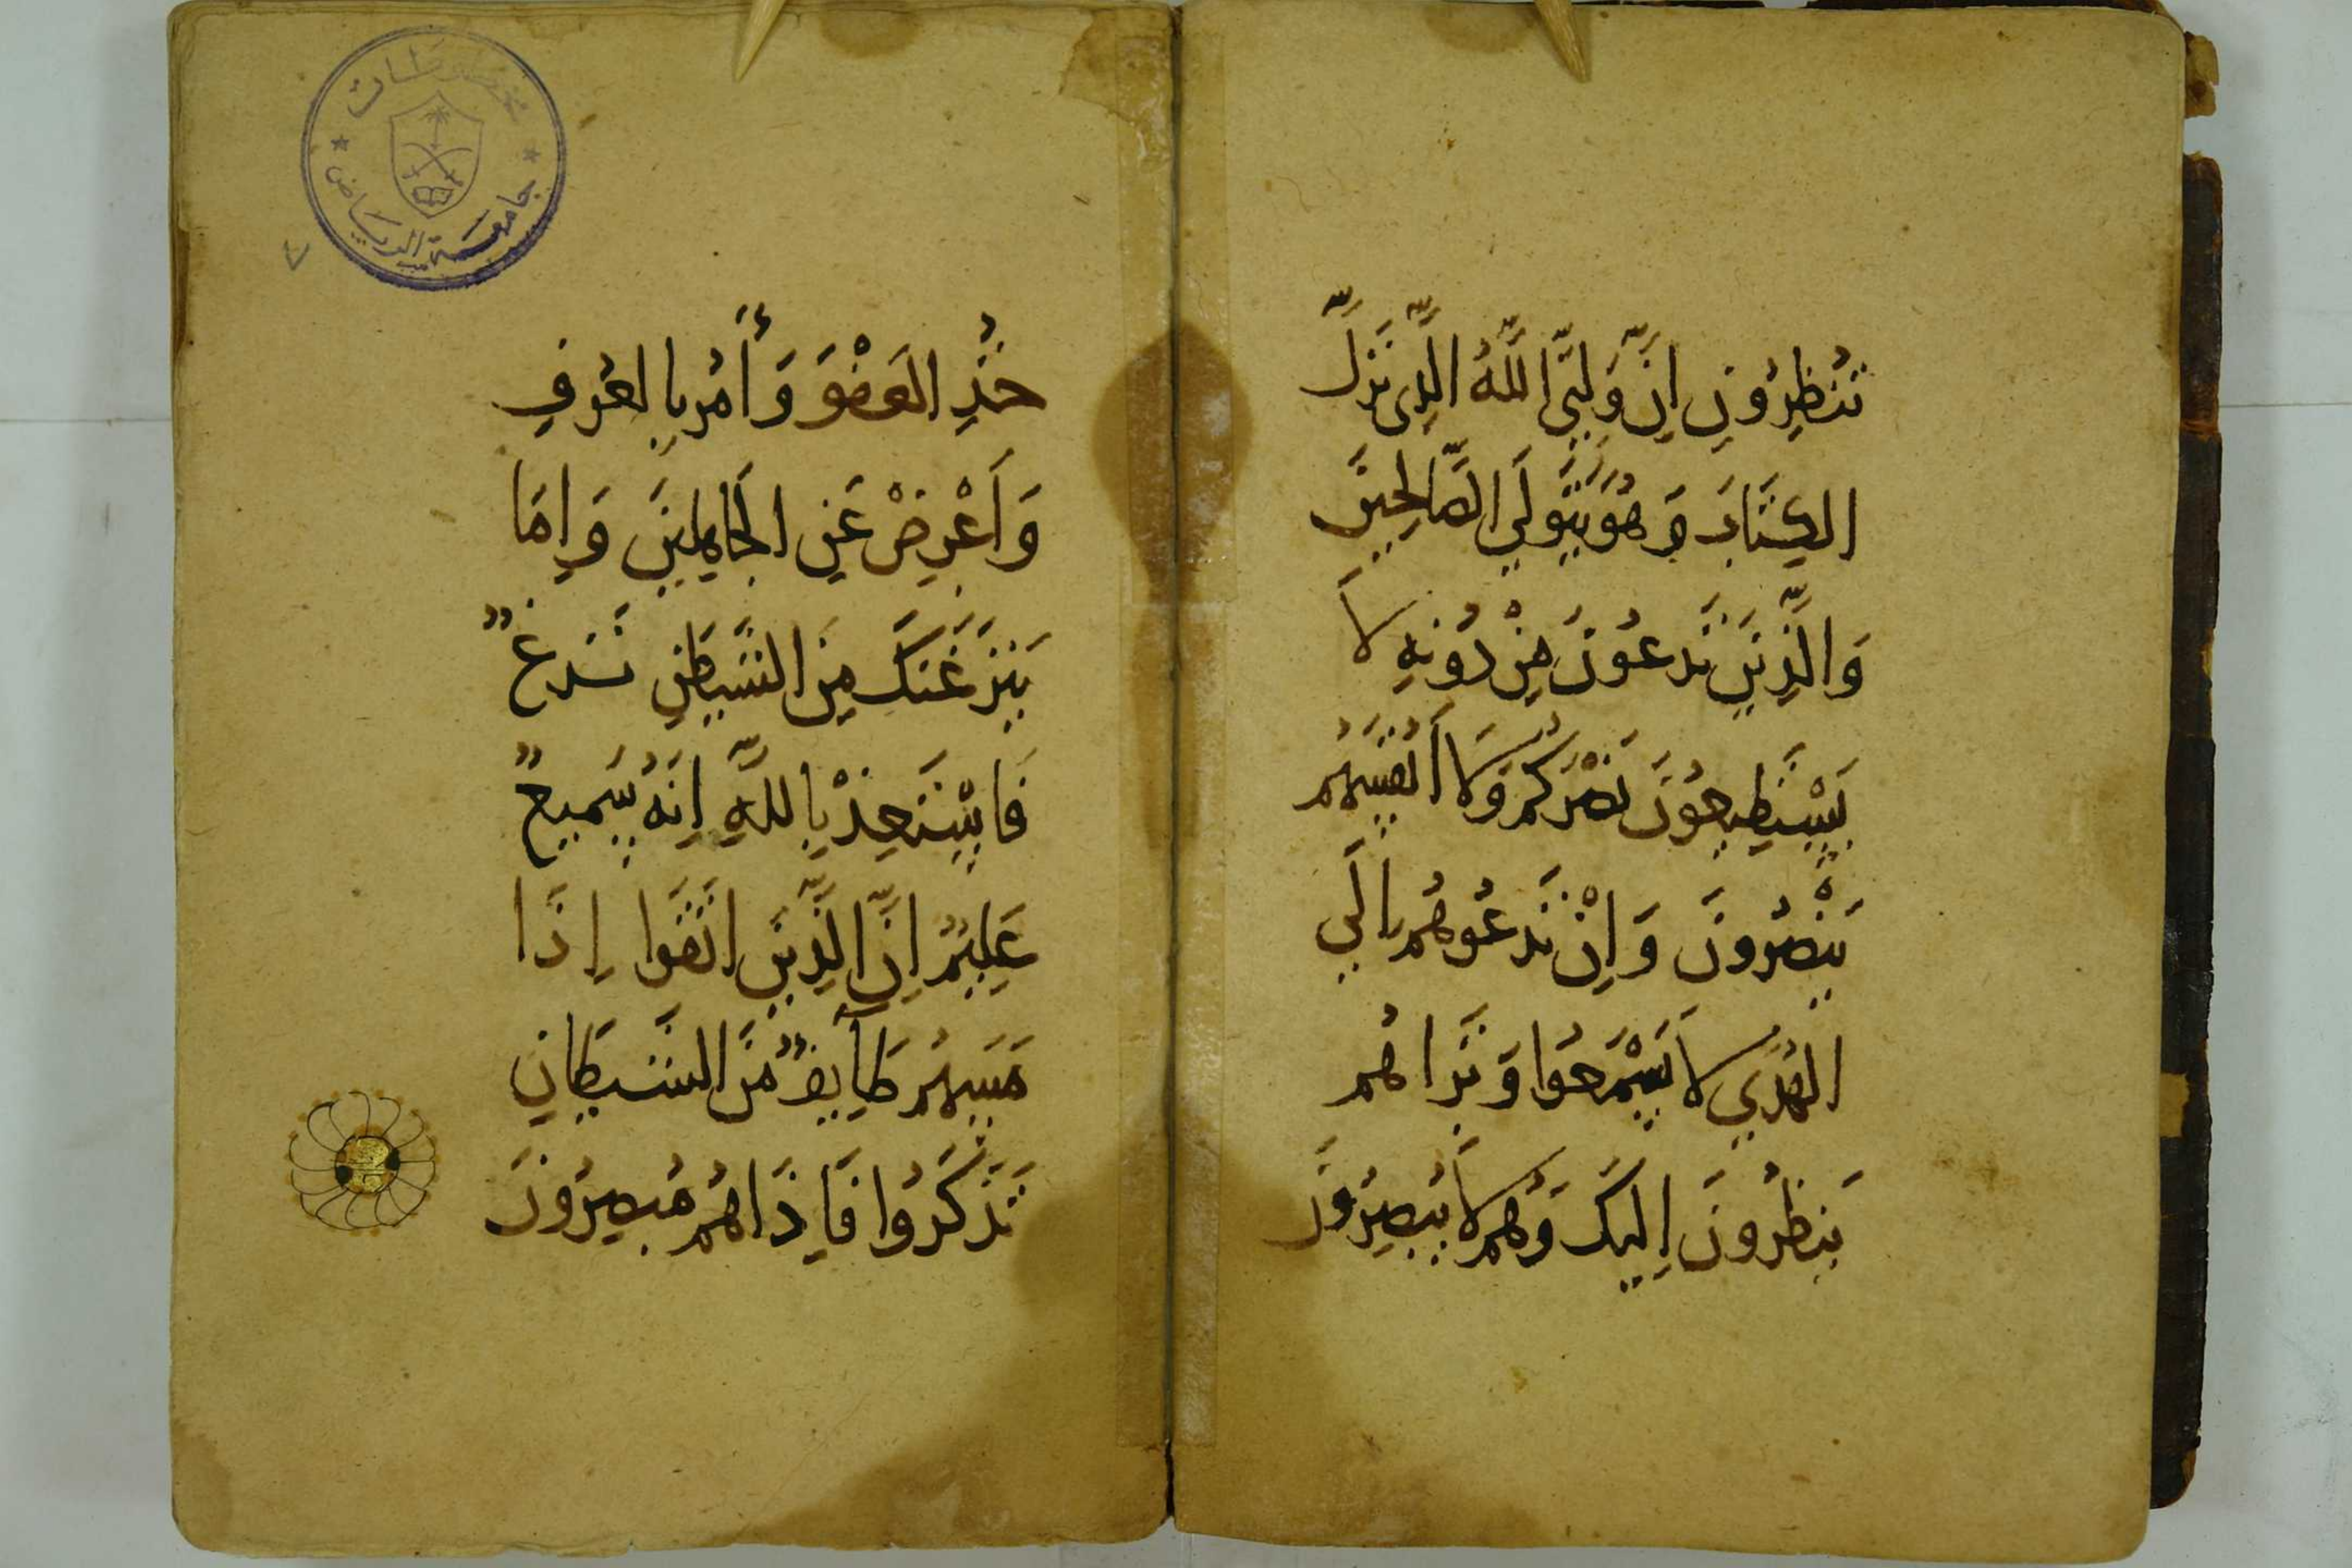 تُنظِرُونِ اِنَّ وَلِيَّ اللَّهُ الَّذِي نَزَّلَ
الكِتَابَ وَهُوَ يَتَوَلَّي الصَّالِحِينَ
وَالَّذِينَ تَدعُونَ مِنْ دُونِهِ لَا
يَسْتَطِيعُونَ نَصْرَكُم وَلَا أَنْفُسَهُم
يَنْصُرُونَ وَاِنْ تَدعُوهُم اِلَي
الهُدَي لَا يَسْمَعُوا وَتَرَاهُم
يَنظُرُونَ اِلَيكَ وَهُم لَا يُبصِرُونَ
خُذِ العَفْوَ وَأَمُر بِالعُرفِ
وَاَعْرِضْ عَنِ الجَاهِلِينَ وَاِمَا
يَنزَغَنَكَ مِنَ الشَيطَنِ نَزغٌ
فَاسْتَعِذْ بِاللَّهِ اِنَهُ سَمِيعٌ
عَلِيمٌ اِنَّ الَّذِينَ اتَقَوا اِذَا
مَسَهُم طَايِفٌ مِنَ الشَيطَانِ
تَذَكَرُوا فَاِذَا هُم مُبصِرُونَ
مخطوطات
جامعة الرياض
٧